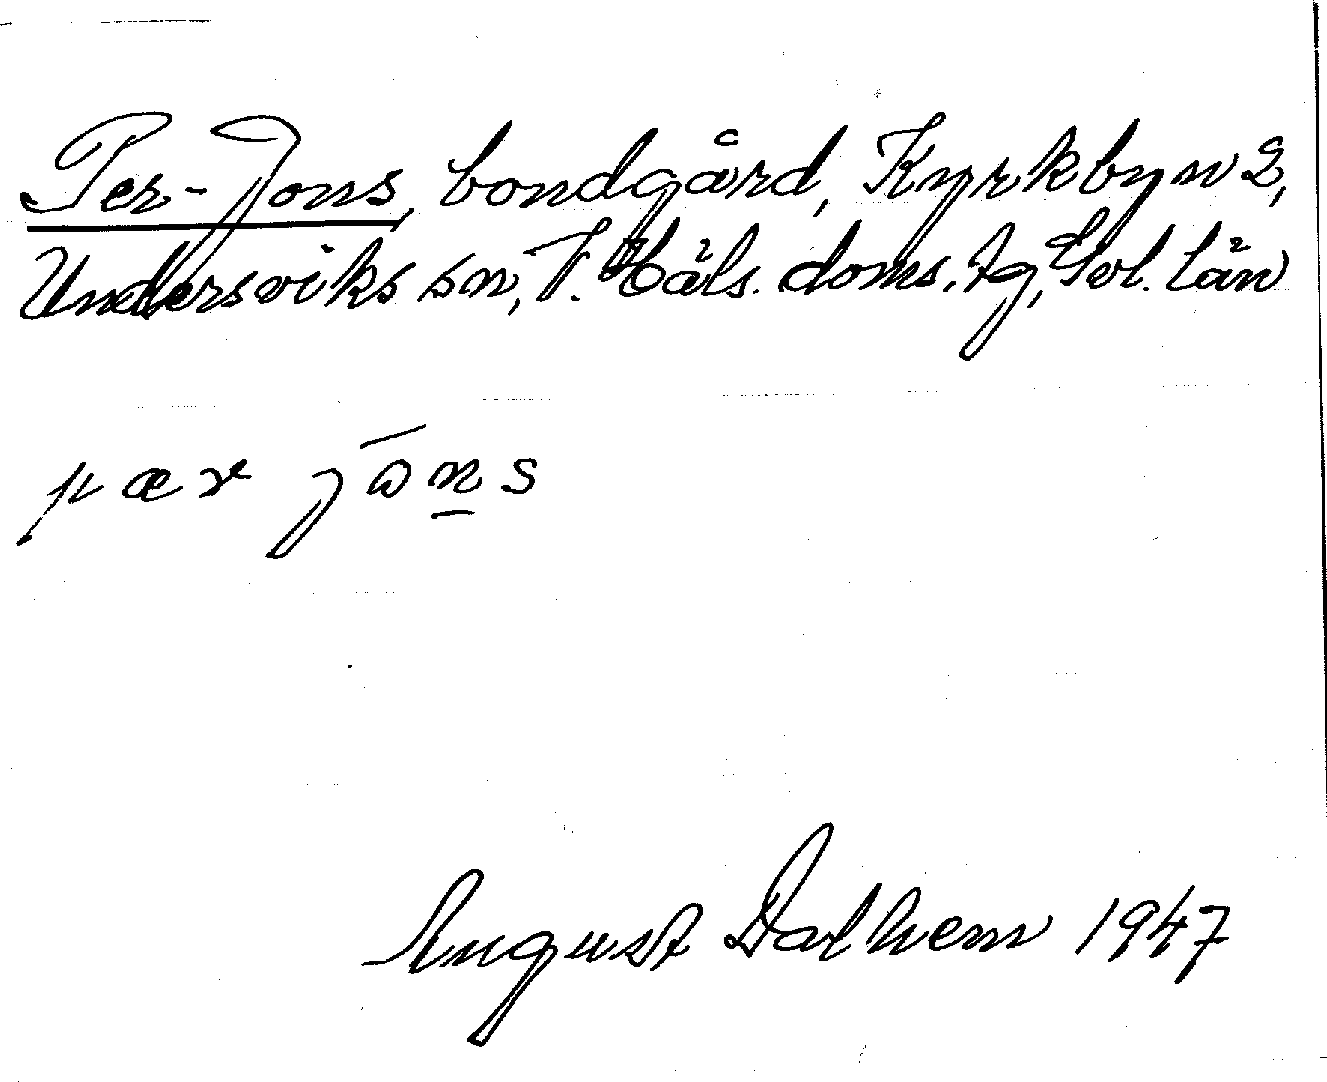 Per-Jons, bondgård, Kyrkbyn 2,
Undersviks sn, V. Häls. doms. tg, Gvl. län
pær jɷ̄n̲s
August Dalhem 1947